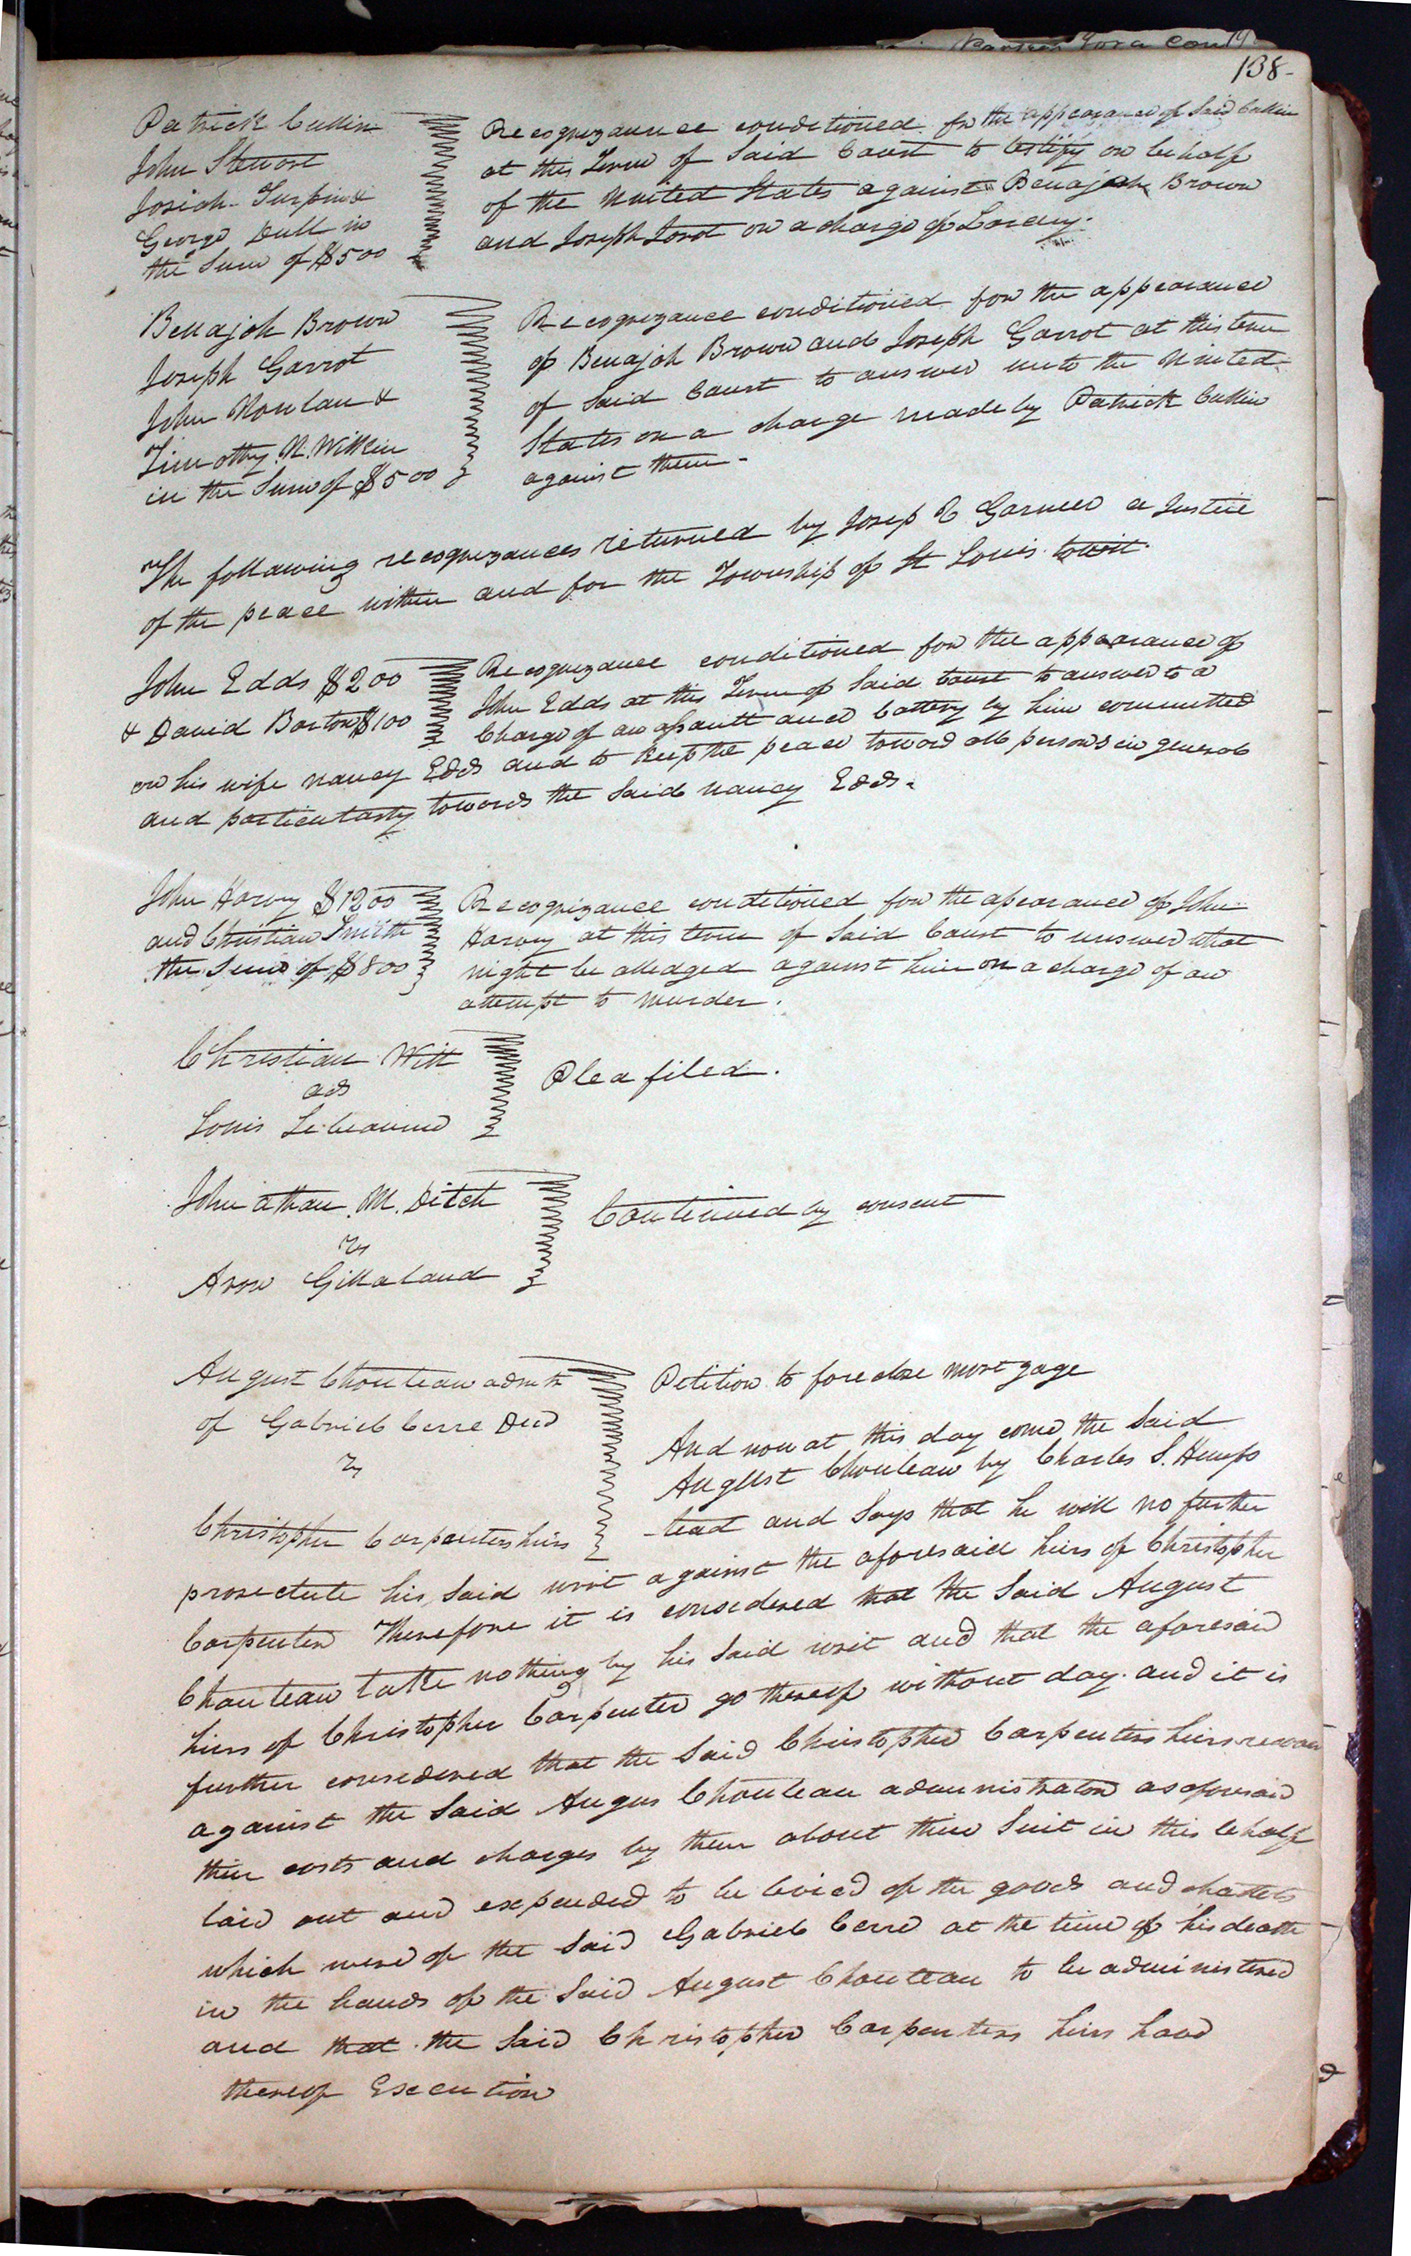 138-
Patrick Cullin
John Stewart
Josiah Turpin &
George Dull in
the Sum of $500
Recognizance conditioned for the appearance of Said Cullin
at this Term of Said Court to testify on behalf
of the United States against Benajah Brown
and Joseph Jorot on a charge of Larceny.
Benajah Brown
Joseph Garrot
John Nowlan &
Timothy N. Witlin
in the Sum of $500
Recognizance conditioned for the appearance
of Benajah Brown and Joseph Garrot at this term
of Said Court to answer unto the United
States on a charge made by Patrick Cullin
against them -
The following recognizances returned by Josep C Garneed a Justice
of the peace within and for the Township of St Louis towit
John Edds $200
& David Barton $100
Recognizance conditioned for the appearance of
John Edds at this Term of Said Court to answer to a
Charge of an assault and battery by him committed
on his wife Nancy Edds and to keep the peace toward all persons in general
and particularly towards the Said Nancy Edds.
John Harvy $1200
and Christian Smiith
the Sum of $800
Recognizance conditioned for the apearance of John
Harvy at this term of Said Court to unswer what
might be alledged against him on a charge of an
attempt to murder.
Christian Witt
ads
Louis Lebeaume
Plea filed.
Johnathan M. Ditch
vs
Aron Gillaland
Continued by consent
August Chouteau admtr
of Gabriel Cerre Decd
vs
Christopher Carpenters heirs
Petition to foreclose mortgage
And now at this day come the Said
August Chouteau by Charles S. Hemps
-tead and Says that he will no further
prosectute his Said writ against the aforesaid heirs of Christopher
Carpenter Therefore it is considered that the Said August
Chouteau take nothing by his Said writ and that the aforesaid
heirs of Christopher Carpenter go thereof without day. and it is
further considered that the Said Christopher Carpenters heirs recover
against the Said Augus Chouteau administrator as aforesaid
their costs and charges by them about their Suit in this behalf
laid out and expended to be levied of the goods and chattels
which were of the Said Gabriel Cerre at the time of his death
in the hands of the Said August Chouteau to be administered
and that the Said Christopher Carpenters heirs have
thereof Execution